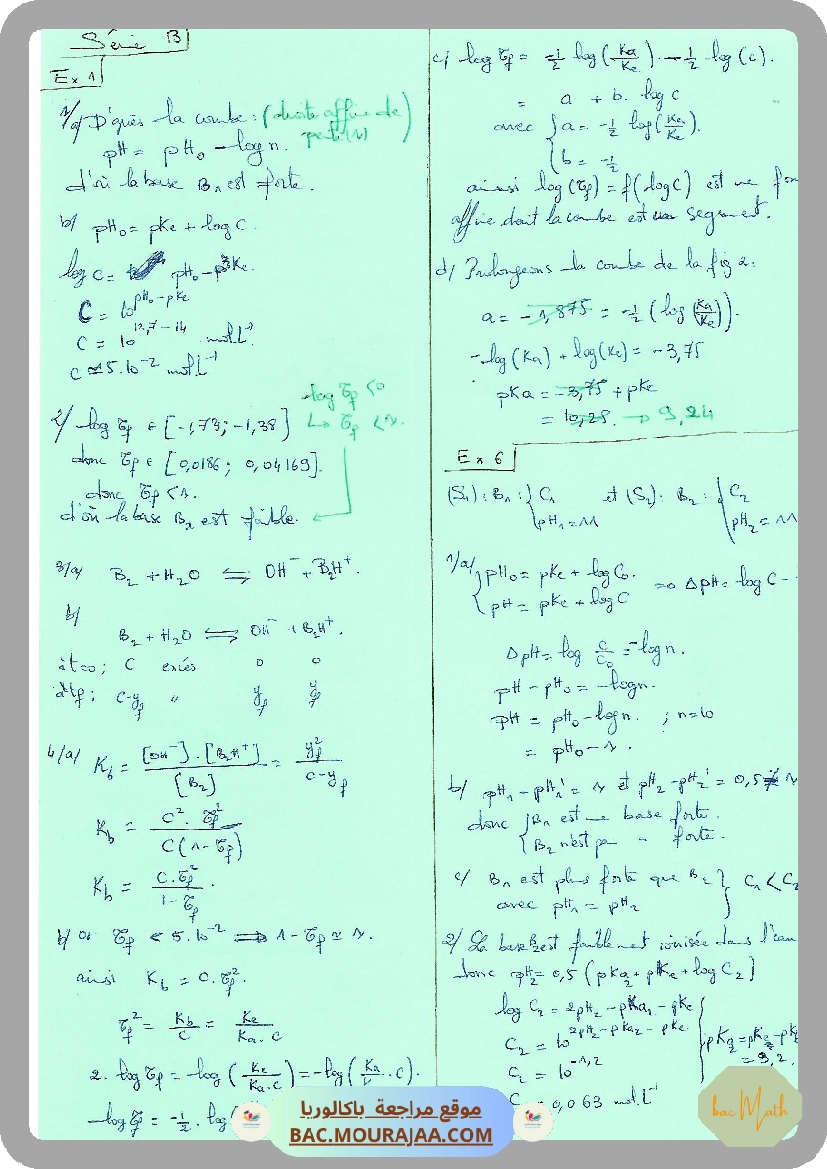 Série B
Ex 1
1/a/ D'après la courbe : (droite affine de
pente (1))
pH = pH₀ - log n.
d'où la base B₁ est forte.
b/ pH₀ = pKe + log C.
log C = pH₀ - pKe.
C = 10^(pH₀ - pKe)
C = 10^(12,7 - 14) mol.L⁻¹
C ≃ 5.10⁻² mol.L⁻¹
log τf < 0
↳ τf < 1.
2/ log τf ∈ [-1,73 ; -1,38]
donc τf ∈ [0,0186 ; 0,04169].
donc τf < 1.
d'où la base B₂ est faible.
3/a/ B₂ + H₂O ⇌ OH⁻ + B₂H⁺.
b/
B₂ + H₂O ⇌ OH⁻ + B₂H⁺.
à t=0 ; C excès 0 0
à tf ; C-yf " yf yf
4/a/ Kb = [OH⁻].[B₂H⁺] / [B₂] = yf² / (C-yf)
Kb = C².τf² / C(1-τf)
Kb = C.τf² / (1-τf).
b/ or τf < 5.10⁻² ⟹ 1-τf ≃ 1.
ainsi Kb = C.τf².
τf² = Kb/C = Ke/(Ka.C)
2.log τf = log (Ke/(Ka.C)) = -log (Ka .C).
log τf = -1/2. log
c/ log τf = -1/2 log(Ka/Ke) - 1/2 log(c).
= a + b. log c
avec { a = -1/2 log(Ka/Ke).
b = -1/2
ainsi log(τf) = f(log C) est une fon
affine dont la courbe est un segment.
d/ Prolongeons la courbe de la fig 2 :
a = -1,875 = -1/2 (log (Ka/Ke)).
-log(Ka) + log(Ke) = -3,75
pKa = -3,75 + pKe
= 10,25. → 9,24
Ex 6
(S₁) : B₁ : { C₁ et (S₂) : B₂ : { C₂
pH₁ = 11 pH₂ = 11
1/a/ { pH₀ = pKe + log C₀ ⇒ ΔpH = log C -
pH = pKe + log C
ΔpH = log C/C₀ = -log n.
pH - pH₀ = -log n.
pH = pH₀ - log n. ; n = 10
= pH₀ - 1.
b/ pH₁ - pH₁' = 1 et pH₂ - pH₂' = 0,5 ≠ 1
donc { B₁ est une base forte.
B₂ n'est pas " forte.
c/ B₁ est plus forte que B₂ } C₁ < C₂
avec pH₁ = pH₂
2/ La base B₂ est faiblement ionisée dans l'eau
donc pH₂ = 0,5 (pKa₂ + pKe + log C₂)
log C₂ = 2pH₂ - pKa₂ - pKe
C₂ = 10^(2pH₂ - pKa₂ - pKe)
C₂ = 10^(-1,2)
= 9,2.
0,063 mol.L⁻¹
موقع مراجعة باكالوريا
BAC.MOURAJAA.COM
bac Math